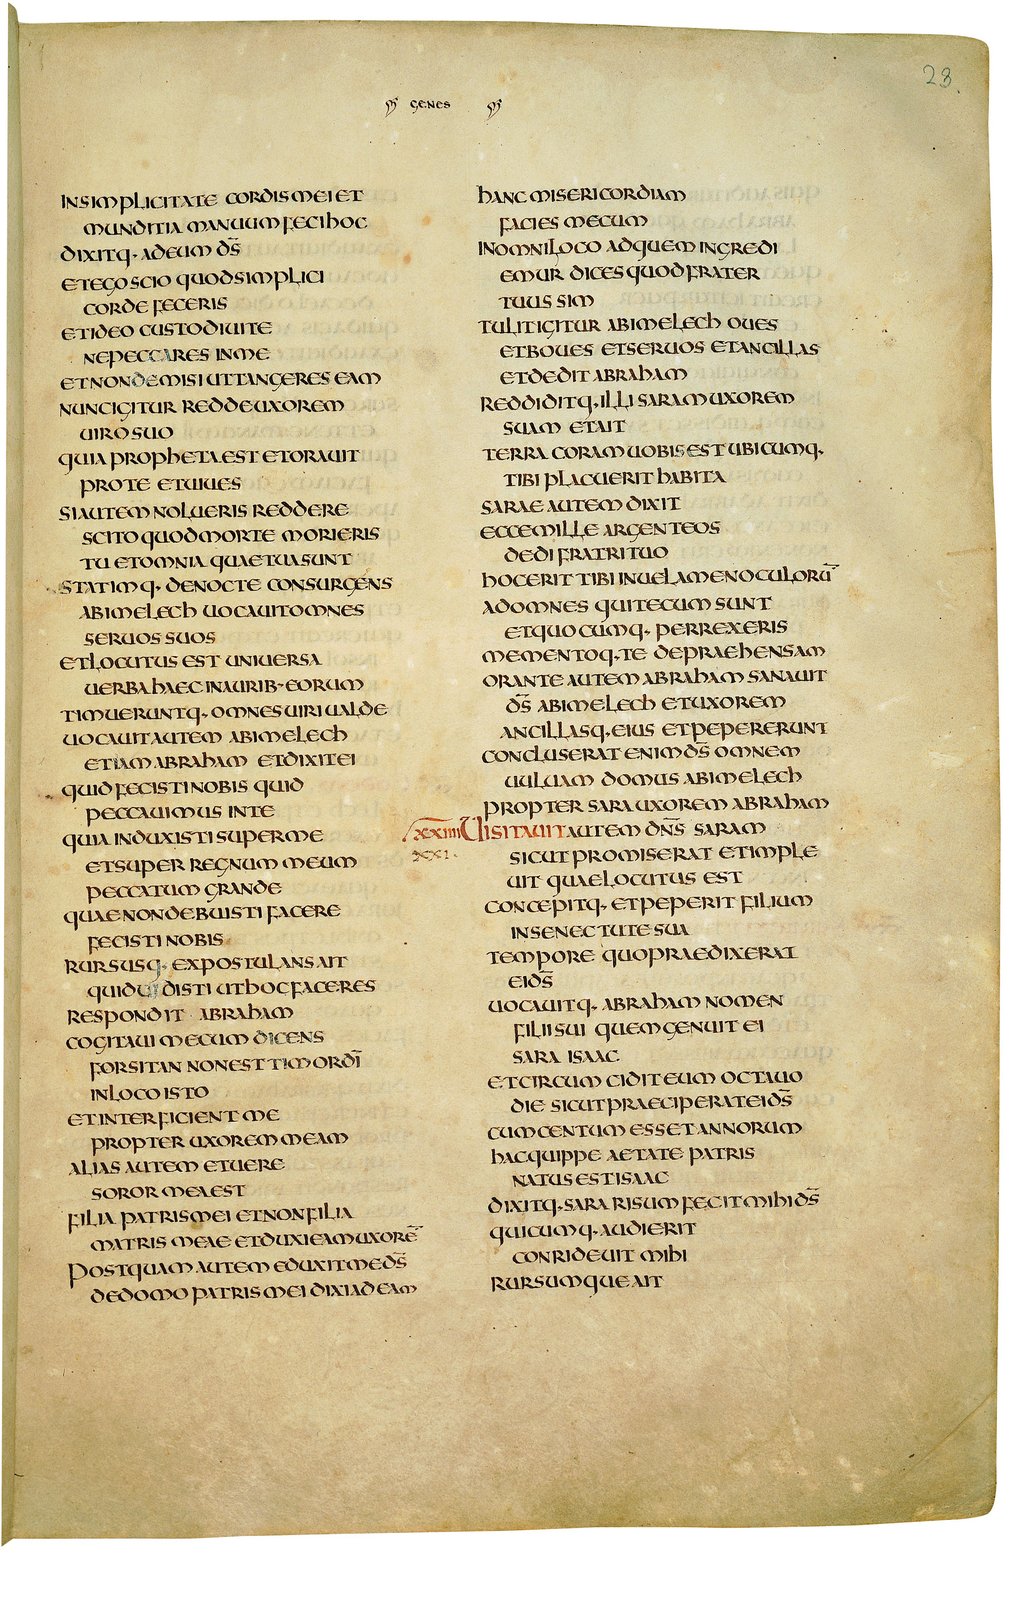 GENES
28.
INSIMPLICITATE CORDISMEI ET
MUNDITIA MANUUM FECI HOC
DIXITQ· ADEUM D̅S̅
ETEGO SCIO QUODSIMPLICI
CORDE FECERIS
ETIDEO CUSTODIUI TE
NEPECCARES INME
ETNONDEMISI UTTANGERES EAM
NUNCIGITUR REDDEUXOREM
UIRO SUO
QUIA PROPHETA EST ETORAUIT
PROTE ETUIUES
SIAUTEM NOLUERIS REDDERE
SCITO QUODMORTE MORIERIS
TU ETOMNIA QUAETUASUNT
STATIMQ· DENOCTE CONSURGENS
ABIMELECH UOCAUITOMNES
SERUOS SUOS
ETLOCUTUS EST UNIUERSA
UERBA HAEC INAURIB· EORUM
TIMUERUNTQ· OMNES UIRI UALDE
UOCAUITAUTEM ABIMELECH
ETIAM ABRAHAM ETDIXITEI
QUID FECISTI NOBIS QUID
PECCAUIMUS INTE
QUIA INDUXISTI SUPERME
ETSUPER REGNUM MEUM
PECCATUM GRANDE
QUAE NONDEBUISTI FACERE
FECISTI NOBIS
RURSUSQ· EXPOSTULANS AIT
QUIDUIDISTI UTHOCFACERES
RESPONDIT ABRAHAM
COGITAUI MECUM DICENS
FORSITAN NONEST TIMOR D̅I̅
INLOCO ISTO
ETINTERFICIENT ME
PROPTER UXOREM MEAM
ALIAS AUTEM ETUERE
SOROR MEAEST
FILIA PATRISMEI ETNONFILIA
MATRIS MEAE ETDUXI EAMUXORE̅
POSTQUAM AUTEM EDUXITME D̅S̅
DEDOMO PATRIS MEI DIXIADEAM
HANC MISERICORDIAM
FACIES MECUM
INOMNILOCO ADQUEM INGREDI
EMUR DICES QUOD FRATER
TUUS SIM
TULITIGITUR ABIMELECH OUES
ETBOUES ETSERUOS ETANCILLAS
ETDEDIT ABRAHAM
REDDIDITQ· ILLI SARAM UXOREM
SUAM ETAIT
TERRA CORAM UOBIS EST UBICUMQ·
TIBI PLACUERIT HABITA
SARAE AUTEM DIXIT
ECCEMILLE ARGENTEOS
DEDI FRATRITUO
HOCERIT TIBI INUELAMENOCULORU̅
ADOMNES QUITECUM SUNT
ETQUOCUMQ· PERREXERIS
MEMENTOQ· TE DEPRAEHENSAM
ORANTE AUTEM ABRAHAM SANAUIT
D̅S̅ ABIMELECH ETUXOREM
ANCILLASQ· EIUS ETPEPERERUNT
CONCLUSERAT ENIM D̅S̅ OMNEM
UULUAM DOMUS ABIMELECH
PROPTER SARA UXOREM ABRAHAM
XXIIII UISITAUIT AUTEM D̅N̅S̅ SARAM
XXI·
SICUT PROMISERAT ETIMPLE
UIT QUAELOCUTUS EST
CONCEPITQ· ETPEPERIT FILIUM
INSENECTUTE SUA
TEMPORE QUOPRAEDIXERAT
EI D̅S̅
UOCAUITQ· ABRAHAM NOMEN
FILII SUI QUEMGENUIT EI
SARA ISAAC
ETCIRCUMCIDIT EUM OCTAUO
DIE SICUTPRAECIPERATEI D̅S̅
CUMCENTUM ESSET ANNORUM
HACQUIPPE AETATE PATRIS
NATUS ESTISAAC
DIXITQ· SARA RISUM FECIT MIHI D̅S̅
QUICUMQ· AUDIERIT
CONRIDEUIT MIHI
RURSUMQUE AIT